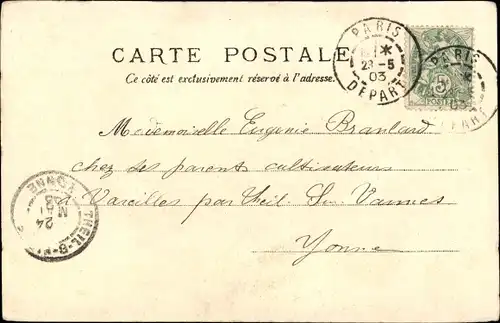 PARIS
23-5
03
DÉPART
PARIS
5
POSTES
03
DÉPART
CARTE POSTALE
Ce côté est exclusivement réservé à l'adresse.
Mademoiselle Eugenie Branlard
chez ses parents cultivateurs
à Vareilles par Theil Sur Vannes
Yonne
THEIL-S-
YONNE
24
MAI
03